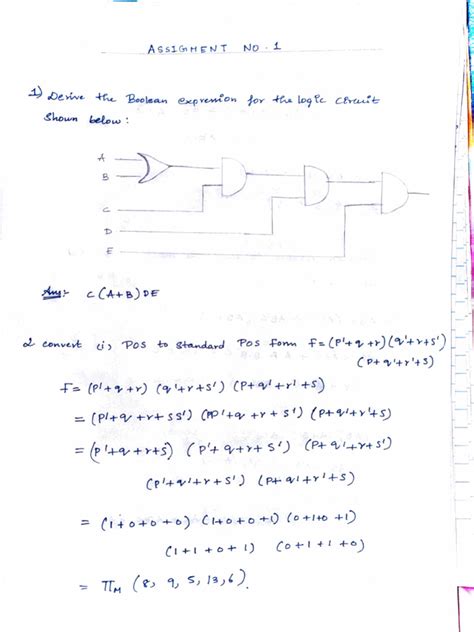 ASSIGMENT NO. 1
1) Derive the Boolean expression for the logic circuit
Shown below:
A
B
C
D
E
Ans:- C(A+B)DE
2 convert (i) POS to Standard POS form f=(P'+q+r)(q'+r+s')
(P+q'+r'+s)
F= (P'+q+r) (q'+r+s') (P+q'+r'+s)
= (P'+q+r+ss') (PP'+q'+r+s') (P+q'+r'+s)
= (P'+q+r+s) (P'+q+r+s') (P+q'+r+s')
(P'+q'+r+s') (P+q'+r'+s)
= (1+0+0+0) (1+0+0+1) (0+1+0+1)
(1+1+0+1) (0+1+1+0)
= ΠM (8, 9, 5, 13, 6).